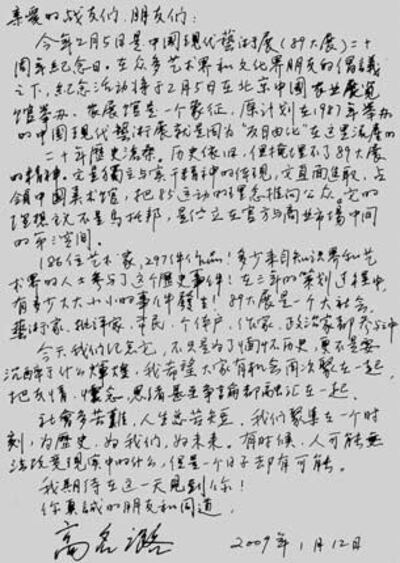 亲爱的战友们、朋友们：
今年2月5日是中国现代艺術展（89大展）二十
周年纪念日。在众多艺术界和文化界朋友的倡議
之下，纪念活动将于2月5日在北京中国农业展览
馆举办。农展馆是一个象征，原计划在1987年举办
的中国现代藝術展就是因为“反自由化”在这里流产的
二十年歷史沧桑。历史依旧，但掩埋不了89大展
的精神。它是独立与实干精神的体现，它直面進取，占
领中国美术馆，把85运动的理念推向公众。它的
理想主义不是乌托邦，是位立在官方与商业市場中间
的第三空间。
186位艺术家，297件作品！多少来自知识界和艺
术界的人士参与了这个歷史事件！在三年的策划过程中，
有多少大大小小的事件發生！89大展是一个大社会，
藝術家、批評家、市民、个体户、作家、政治家都参与其中
今天我们纪念它，不只是为了缅怀历史，更不是要
沉醉于什么輝煌，我希望大家有机会再次聚在一起，
把友情、懷念、思绪甚至争論都融汇在一起。
社會多苦難，人生总苦短，我们聚集在一个时
刻，为歷史、为我们、为未来。有时候，人可能無
法改变现实中的什么，但是一个日子却有可能。
我期待在这一天见到你！
你真誠的朋友和同道，
高名潞
2009年1月12日